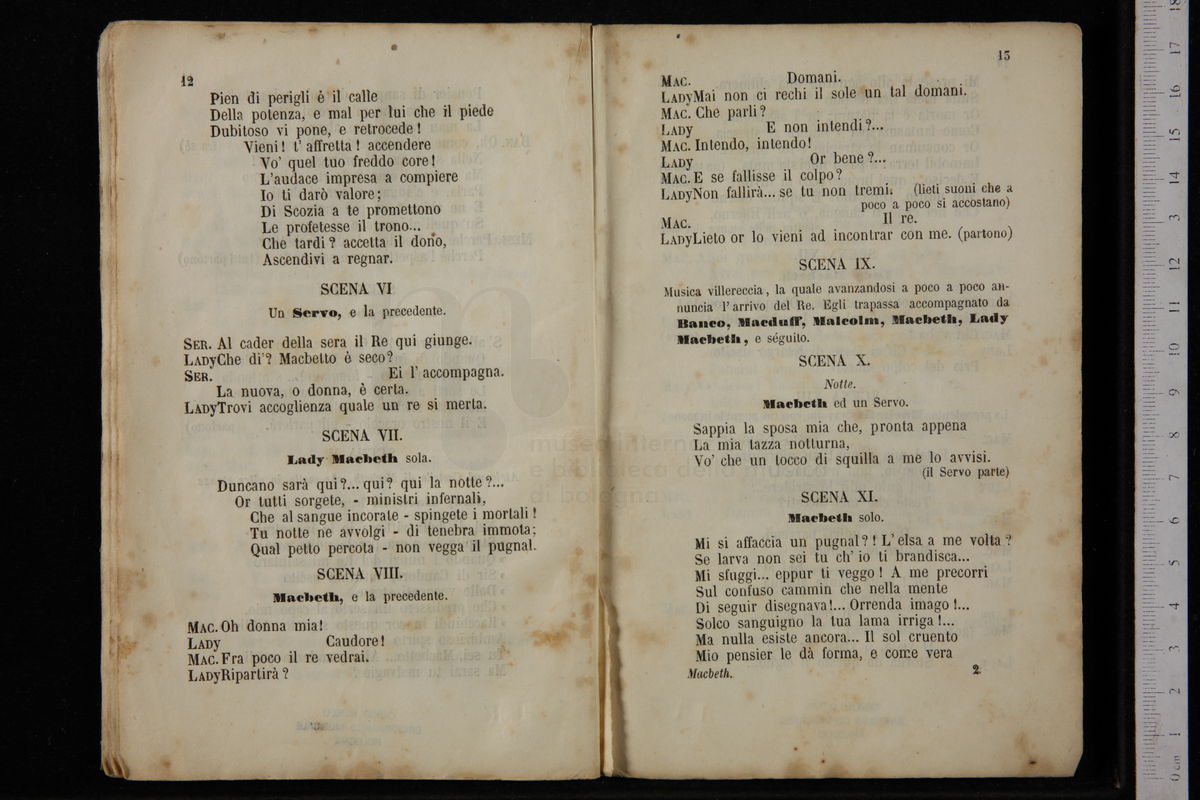 12
Pien di perigli è il calle
Della potenza, e mal per lui che il piede
Dubitoso vi pone, e retrocede!
Vieni! t' affretta! accendere
Vo' quel tuo freddo core!
L'audace impresa a compiere
Io ti darò valore;
Di Scozia a te promettono
Le profetesse il trono...
Che tardi? accetta il dono,
Ascendivi a regnar.
SCENA VI
Un Servo, e la precedente.
SER. Al cader della sera il Re qui giunge.
LADY Che di'? Macbetto è seco?
SER. Ei l' accompagna.
La nuova, o donna, è certa.
LADY Trovi accoglienza quale un re si merta.
SCENA VII.
Lady Macbeth sola.
Duncano sarà qui?... qui? qui la notte?...
Or tutti sorgete, - ministri infernali,
Che al sangue incorate - spingete i mortali!
Tu notte ne avvolgi - di tenebra immota;
Qual petto percota - non vegga il pugnal.
SCENA VIII.
Macbeth, e la precedente.
MAC. Oh donna mia!
LADY Caudore!
MAC. Fra poco il re vedrai.
LADY Ripartirà?
13
MAC. Domani.
LADY Mai non ci rechi il sole un tal domani.
MAC. Che parli?
LADY E non intendi?...
MAC. Intendo, intendo!
LADY Or bene?...
MAC. E se fallisse il colpo?
LADY Non fallirà... se tu non tremi. (lieti suoni che a
poco a poco si accostano)
MAC. Il re.
LADY Lieto or lo vieni ad incontrar con me. (partono)
SCENA IX.
Musica villereccia, la quale avanzandosi a poco a poco an-
nuncia l'arrivo del Re. Egli trapassa accompagnato da
Banco, Macduff, Malcolm, Macbeth, Lady
Macbeth, e séguito.
SCENA X.
Notte.
Macbeth ed un Servo.
Sappia la sposa mia che, pronta appena
La mia tazza notturna,
Vo' che un tocco di squilla a me lo avvisi.
(il Servo parte)
SCENA XI.
Macbeth solo.
Mi si affaccia un pugnal?! L' elsa a me volta?
Se larva non sei tu ch' io ti brandisca...
Mi sfuggi... eppur ti veggo! A me precorri
Sul confuso cammin che nella mente
Di seguir disegnava!... Orrenda imago!...
Solco sanguigno la tua lama irriga!...
Ma nulla esiste ancora... Il sol cruento
Mio pensier le dà forma, e come vera
Macbeth. 2